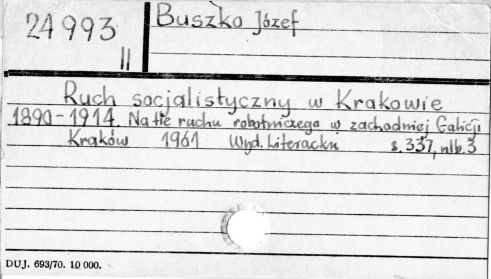 24993
II
Buszko Józef
Ruch socjalistyczny w Krakowie
1890-1914. Na tle ruchu robotniczego w zachodniej Galicji
Kraków 1961 Wyd. Literackie s. 337, nlb. 3
DUJ. 693/70. 10 000.